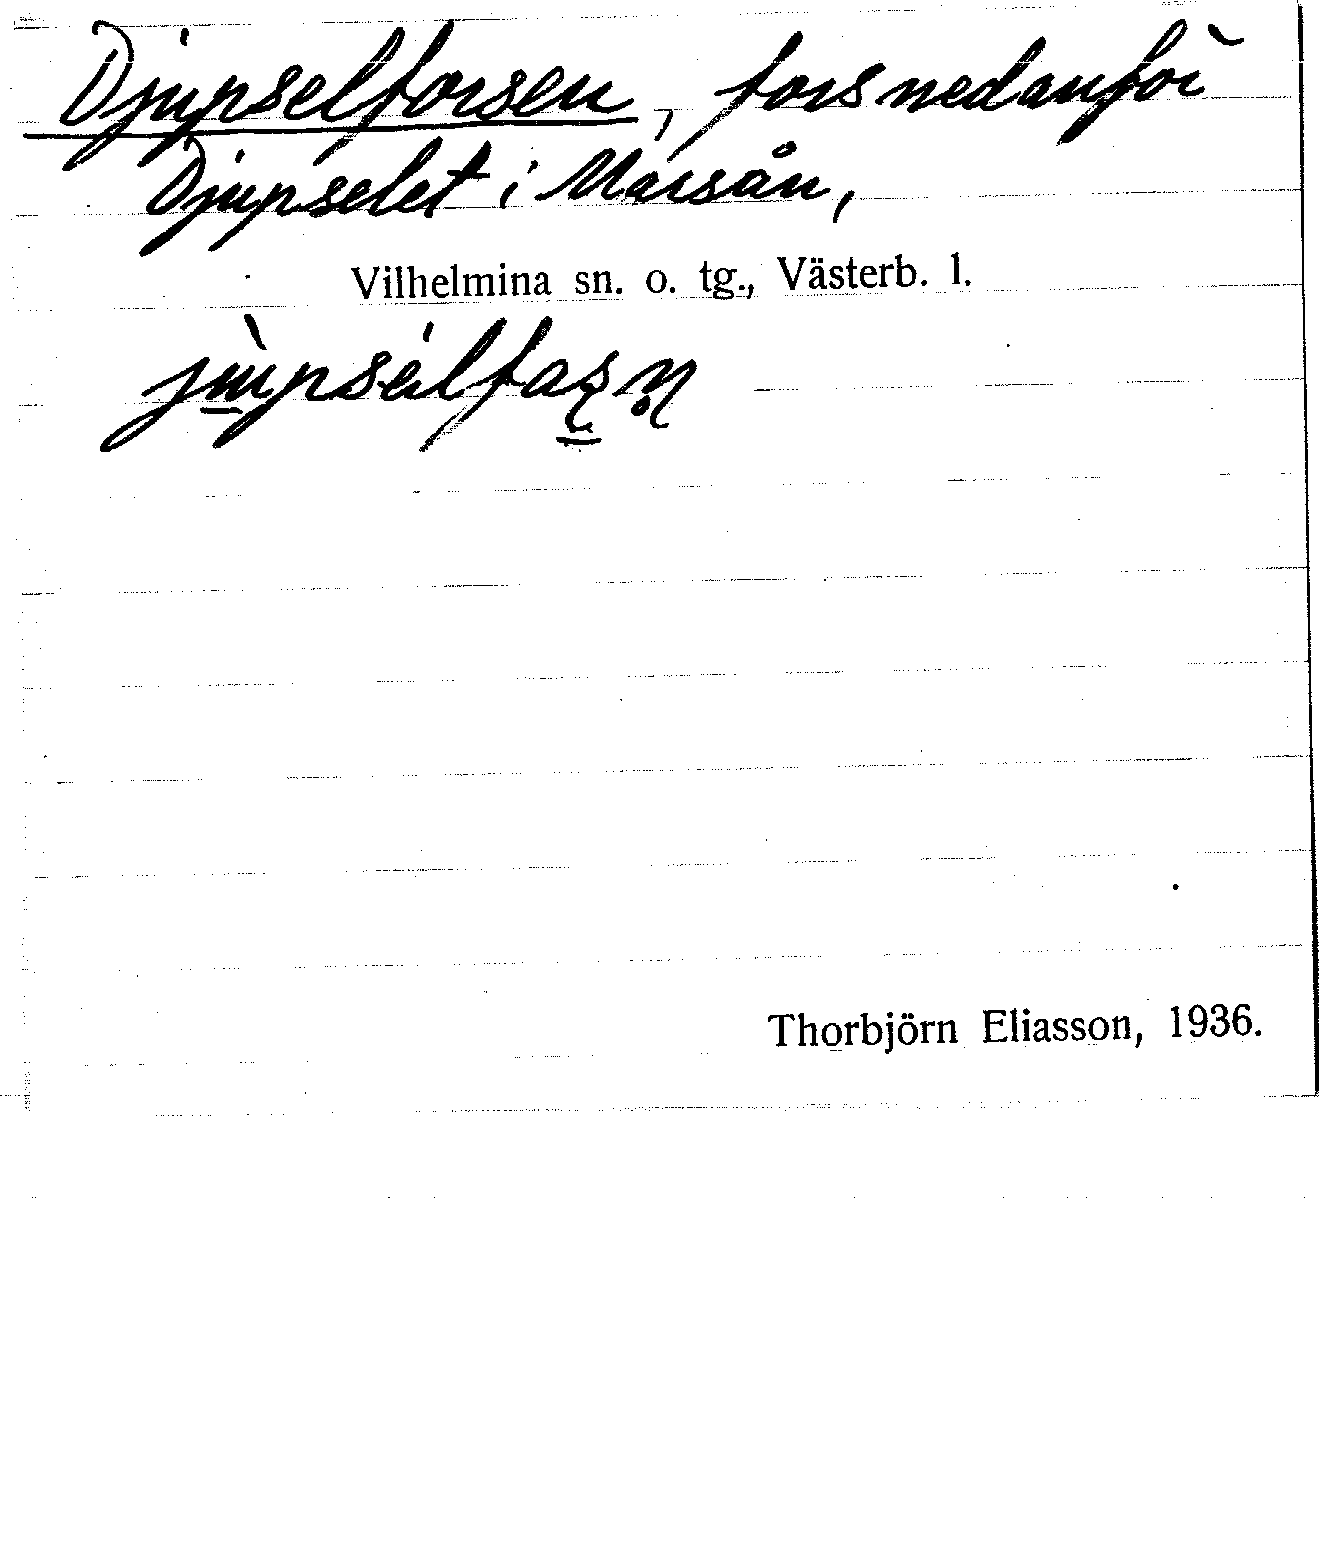 Djupselforsen, fors nedanför
Djupselet i Marsån,
Vilhelmina sn. o. tg., Västerb. l.
Thorbjörn Eliasson, 1936.